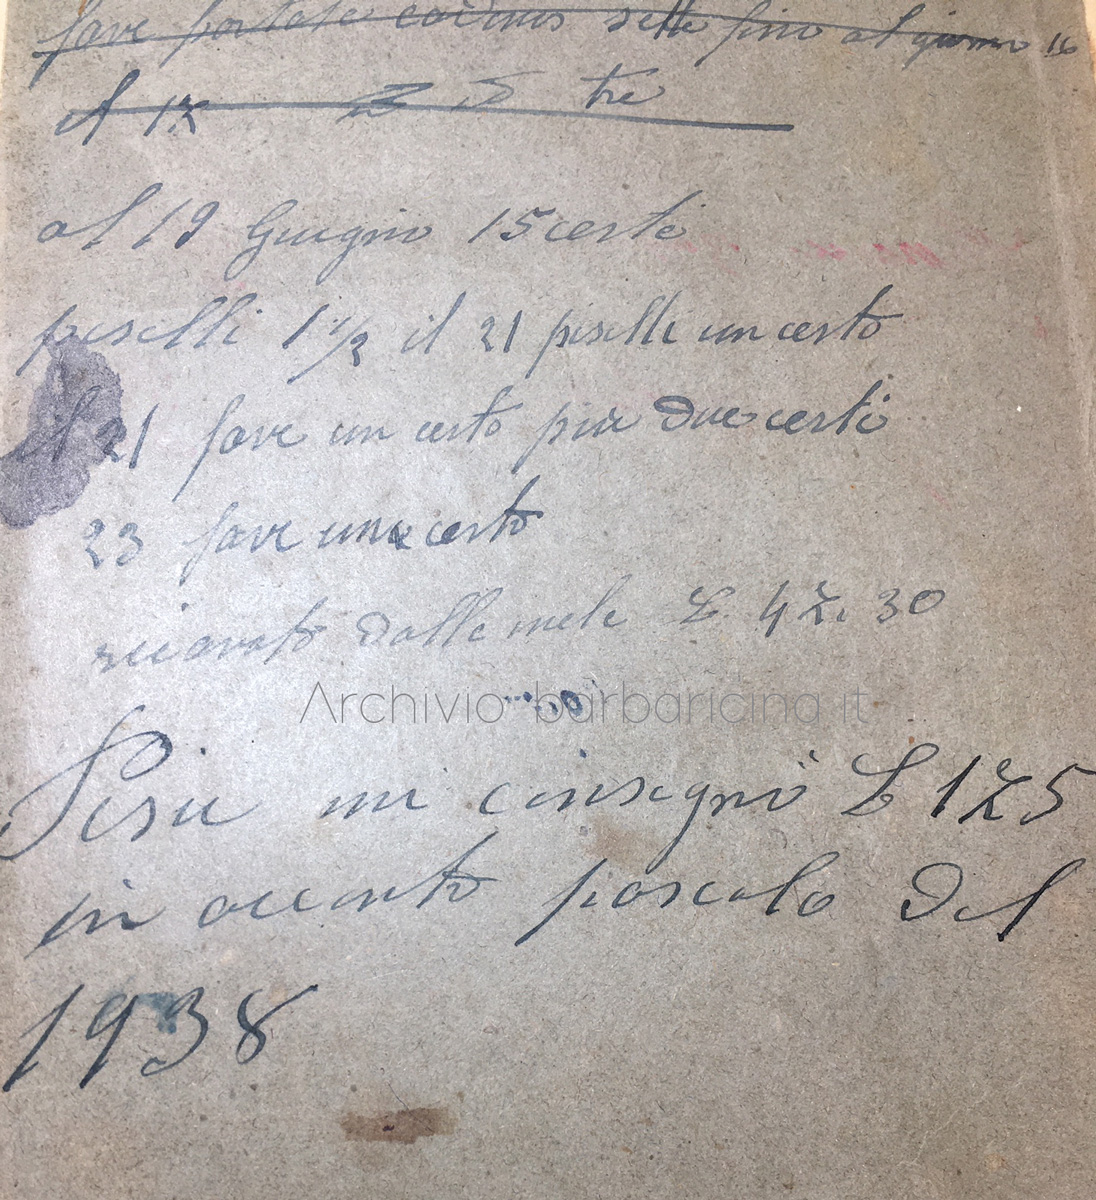 fave portate cocimus sette fino al giorno 16
il 17 tre
al 19 Giugnio 15 certi
piselli 1 1/2 il 21 piselli un certo
il 21 fave un certo piu due certi
23 fave un certo
ricavato dalle mele £. 47. 30
Archivio barbaricina it
Pisu mi cinsegnò £ 175
in acconto pascolo del
1938